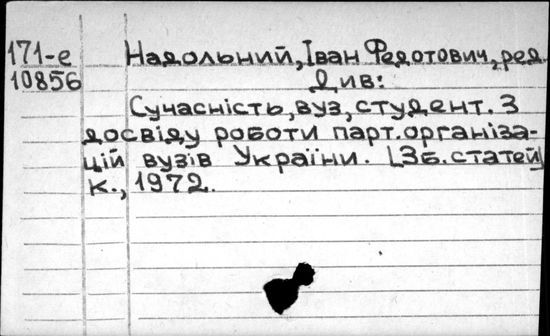 171-е Надольний, Іван Федотович, ред.
10856 Див:
Сучасність, вуз, студент. З
досвіду роботи парт. організа-
цій вузів України. [Зб. статей]
К., 1972.